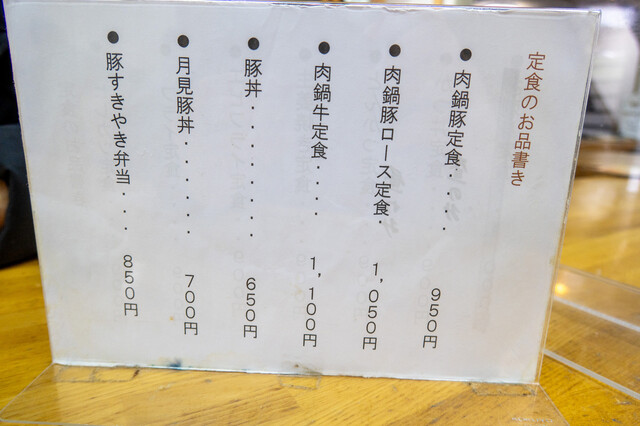 定食のお品書き
●肉鍋豚定食・・・・950円
●肉鍋豚ロース定食・1,050円
●肉鍋牛定食・・・・1,100円
●豚丼・・・・・・・・650円
●月見豚丼・・・・・・700円
●豚すきやき弁当・・・850円